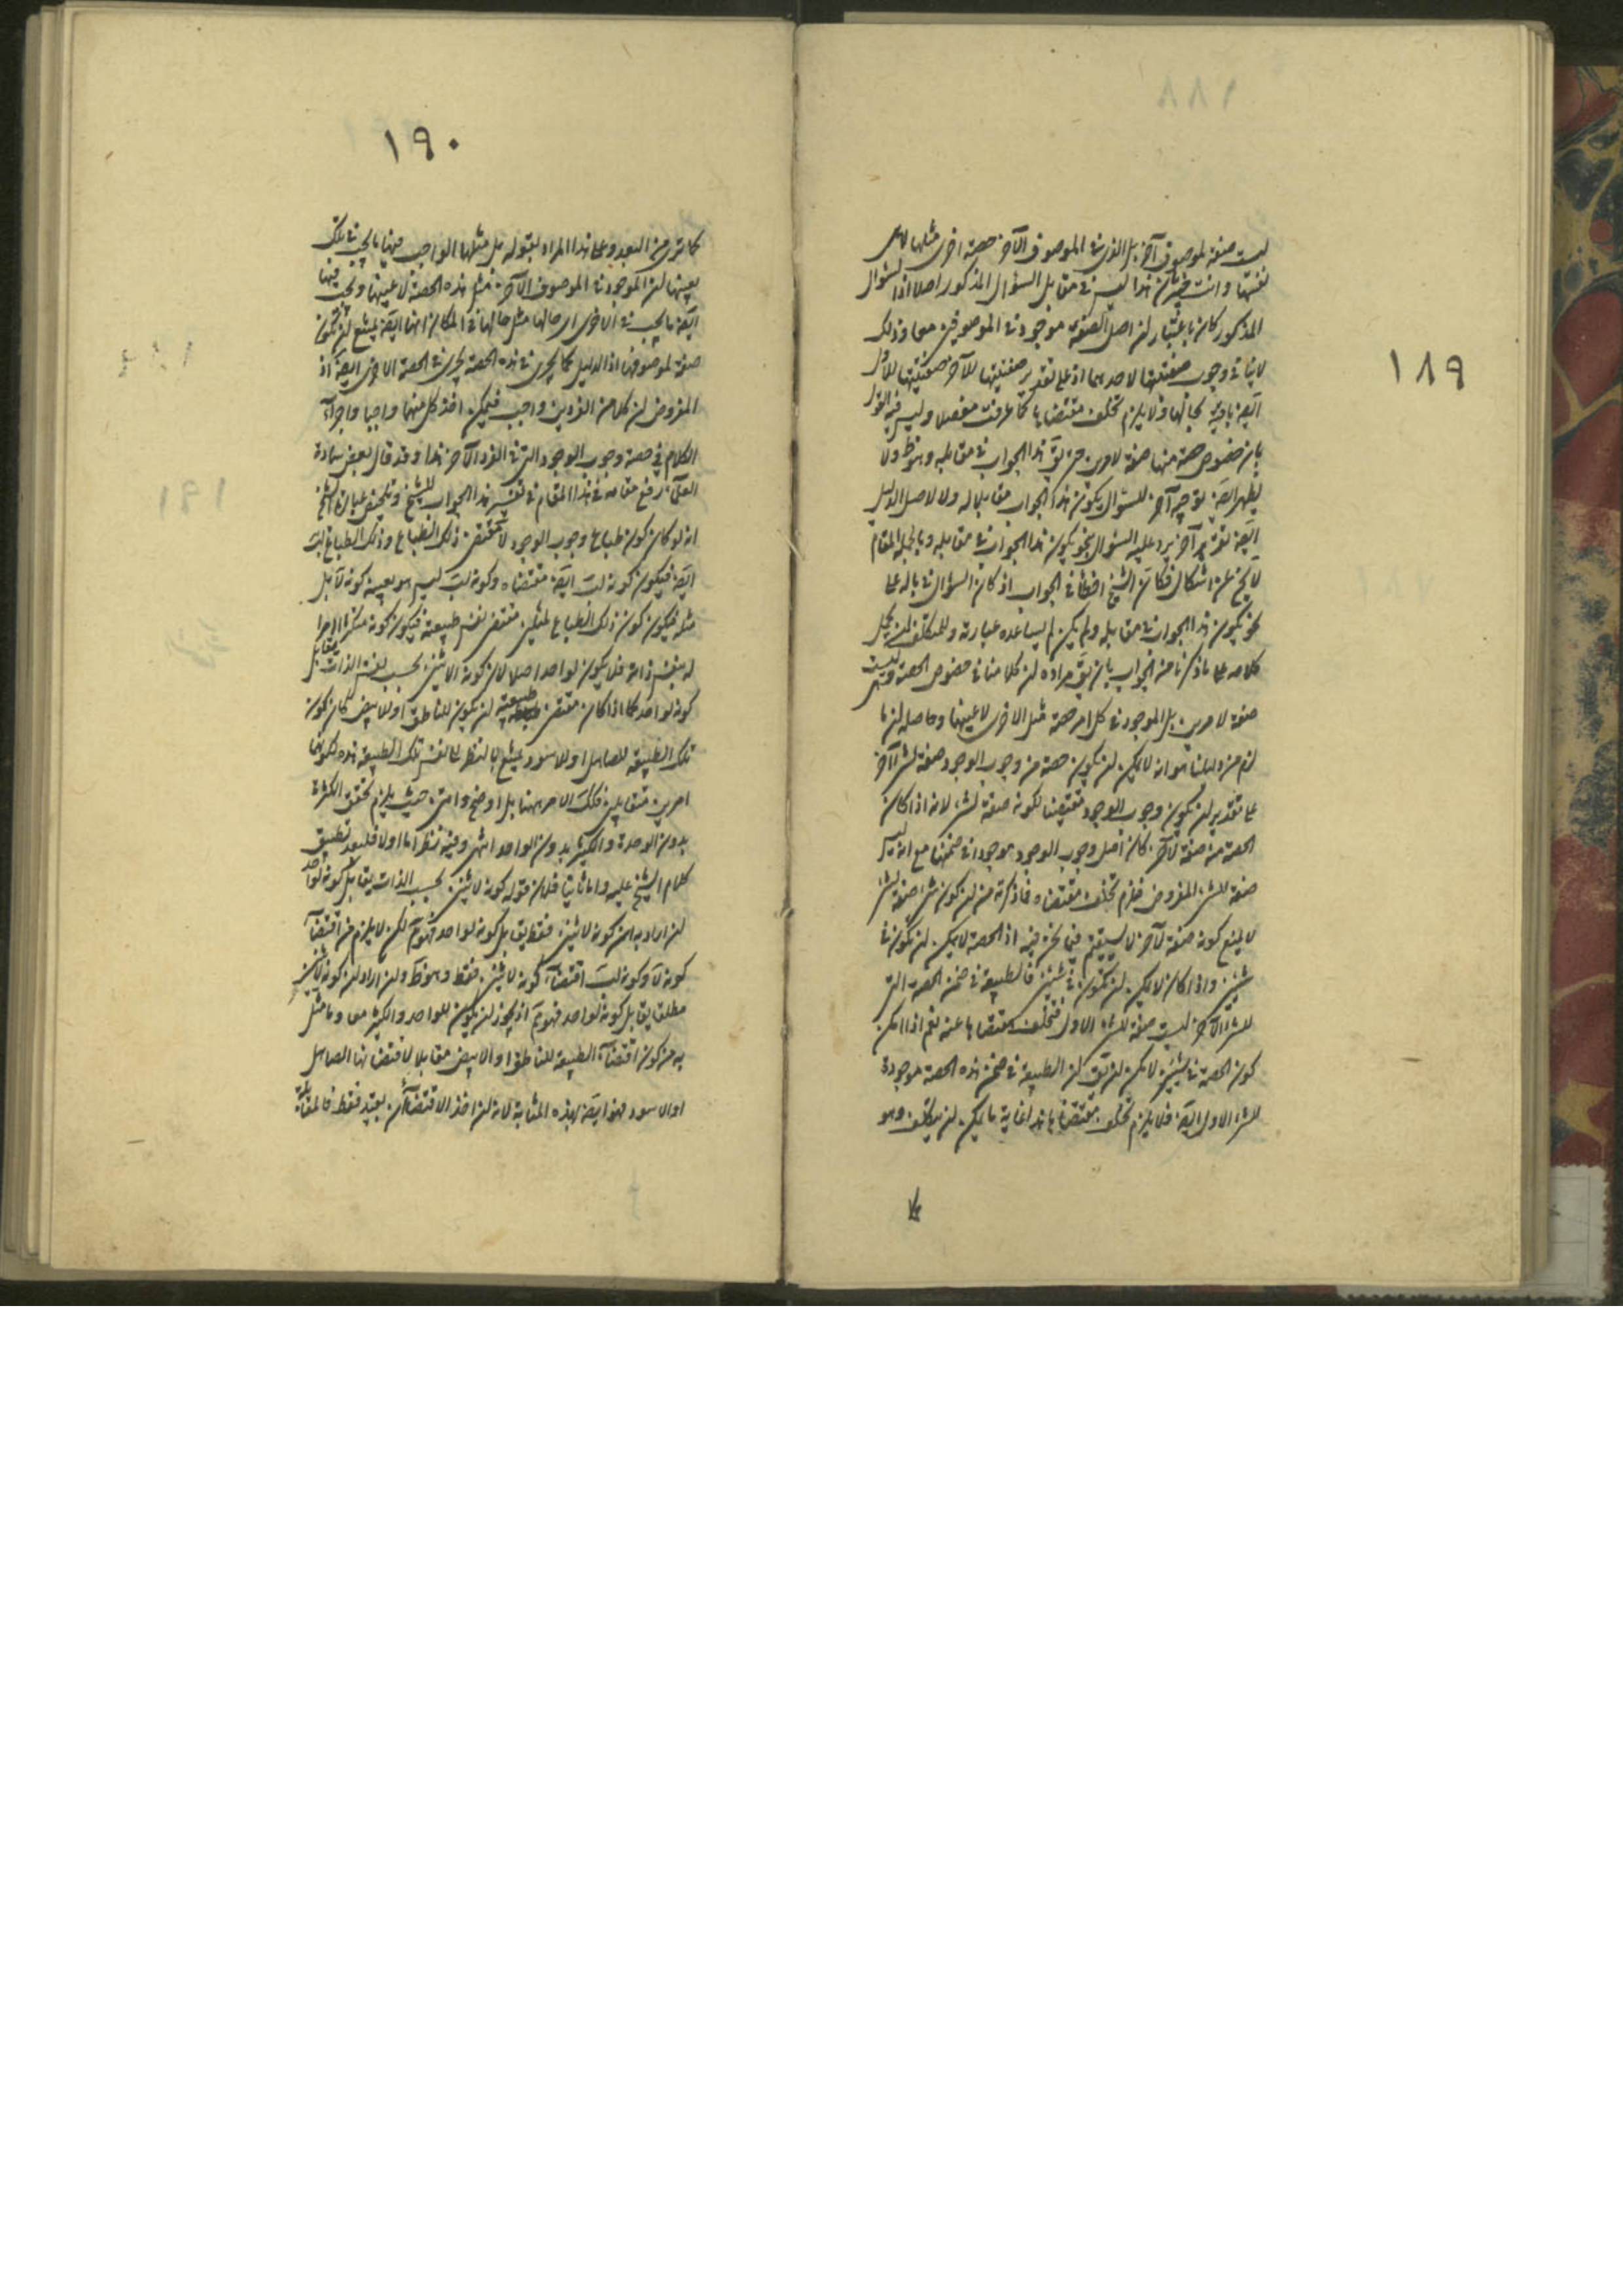 ١٨٩
ليست صفة لموصوف آخر بل الذي في الموصوف الآخر حصة اخرى مثلها لا هي
نفسها وانت خبير بان هذا ليس في مقابل السؤال المذكور اصلا اذ السؤال
المذكور كان باعتبار ان اصل الصفة موجود في الموصوفين معا وذلك
لا ينافي وجوب صفتيتها لاحدهما اذ على تقدير صفتيتها للآخر صفتيتها للاول
ايضا باقية بحالها ولا يلزم تخلف مقتضاها كما عرفت مفصلا وليس فيه القول
بان خصوص حصة منها صفة لامرين حتى يق هذا الجواب في مقابله وهو ظ ولا
يظهر ايضا توجيه آخر للسؤال يكون هذا الجواب مقابلا له ولا لاصل الدليل
ايضا تقرير آخر يرد عليه السؤال بنحو يكون هذا الجواب في مقابله وبالجملة المقام
لا يخ عن اشكال فكان الشيخ اخطأ في الجواب اذ كان السؤال في باله على
نحو يكون هذا الجواب في مقابله ولم يكن لم يساعده عبارته وللمتكلف ان يحمل
كلامه على ما ذكرنا من الجواب بان يق مراده ان كلامنا في خصوص الحصة وهي ليست
صفة لامرين بل الموجود في كل امر حصة مثل الاخرى لا عينها وحاصله ان ما
لزم من دليلنا هو انه لا يمكن ان يكون حصة من وجوب الوجود صفة لشئ آخر
على تقدير ان يكون وجوب الوجود مقتضيا لكونه صفة لشئ لانه اذا كان
الحصة منه صفة لآخر كان اصل وجوب الوجود موجودا في ضمنها مع انه ليس
صفة للشئ المفروض فلزم تخلف مقتضاه فما ذكرته من ان كون شئ صفة لشئ
لا يمنع كونه صفة لآخر لا يستقيم فيما نحن فيه اذ الحصة لا يمكن ان تكون في
شيئين واذا كان لا يمكن ان تكون في شيئين فالطبيعة في ضمن الحصة التي
للشئ الآخر ليست صفة للشئ الاول فتخلف مقتضاها عنه نعم اذا امكن
كون الحصة في شيئين لامكن ان يق ان الطبيعة في ضمن هذه الحصة موجودة
للشئ الاول ايضا فلا يلزم تخلف مقتضاها هذا غاية ما يمكن ان يتكلف وهو
١٩٠
كما ترى من البعد وعلى هذا المراد بقوله بل مثلها الواجب فيها ما يجب في تلك
بعينها ان الموجود في الموصوف الآخر مثل هذه الحصة لا عينها ويجب فيها
ايضا ما يجب في الاخرى اي حالها مثل حالها في المكان انها ايضا يمتنع ان تكون
صفة لموصوفين اذ الدليل كما يجري في هذه الحصة يجري في الحصة الاخرى ايضا اذ
المفروض ان كلا من الفردين واجب فيمكن اخذ كل منهما واجبا واجراء
الكلام في حصة وجوب الوجود التي في الفرد الآخر هذا وقد قال بعض سادة
العلماء رفع مقامه في هذا المقام في تفسير هذا الجواب للشيخ وتلخيص عبارة الشيخ
انه لو كان كون طباع وجوب الوجود لآ مقتضى ذلك الطباع وذلك الطباع لب
ايضا فيكون كونه لب ايضا مقتضاه وكونه لب ليس هو بعينه كونه لآ بل
مثله فيكون كون ذلك الطباع لشيئين مقتضى نفس طبيعته فيكون كونه متكثرا امرا
له بنفس ذاته فلا يكون لواحد اصلا لان كونه لاثنين بحسب نفس الذات يقابل
كونه لواحد كما اذا كان مقتضى طبيعته ان يكون للناطق او للابيض كان كون
تلك الطبيعة للصاهل او للاسود يمتنع بالنظر الى نفس تلك الطبيعة هذه لكونهما
امرين متقابلين فكك الامر ههنا بل اوضح وامتن حيث يلزم تحقق الكثرة
بدون الوحدة والكثير بدون الواحد انتهى وفيه نظر اما اولا فلبعد تطبيق
كلام الشيخ عليه واما ثانيا فلان قوله كونه لاثنين بحسب الذات يقابل كونه لواحد
ان اراد به ان كونه لاثنين فقط يقابل كونه لواحد فهو مم لكن لا يلزم من اقتضاء
كونه لآ وكونه لب اقتضاء كونه لاثنين فقط وهو ظ وان اراد ان كونه لاثنين
مطلقا يقابل كونه لواحد فهو مم اذ يجوز ان يكون للواحد والكثير معا وما مثل
به من كون اقتضاء الطبيعة للناطق او الابيض مقابلا لاقتضائها الصاهل
او الاسود فهو ايضا بهذه المثابة لانه ان اخذ الاقتضاآن بقيد فقط فالمقابلة